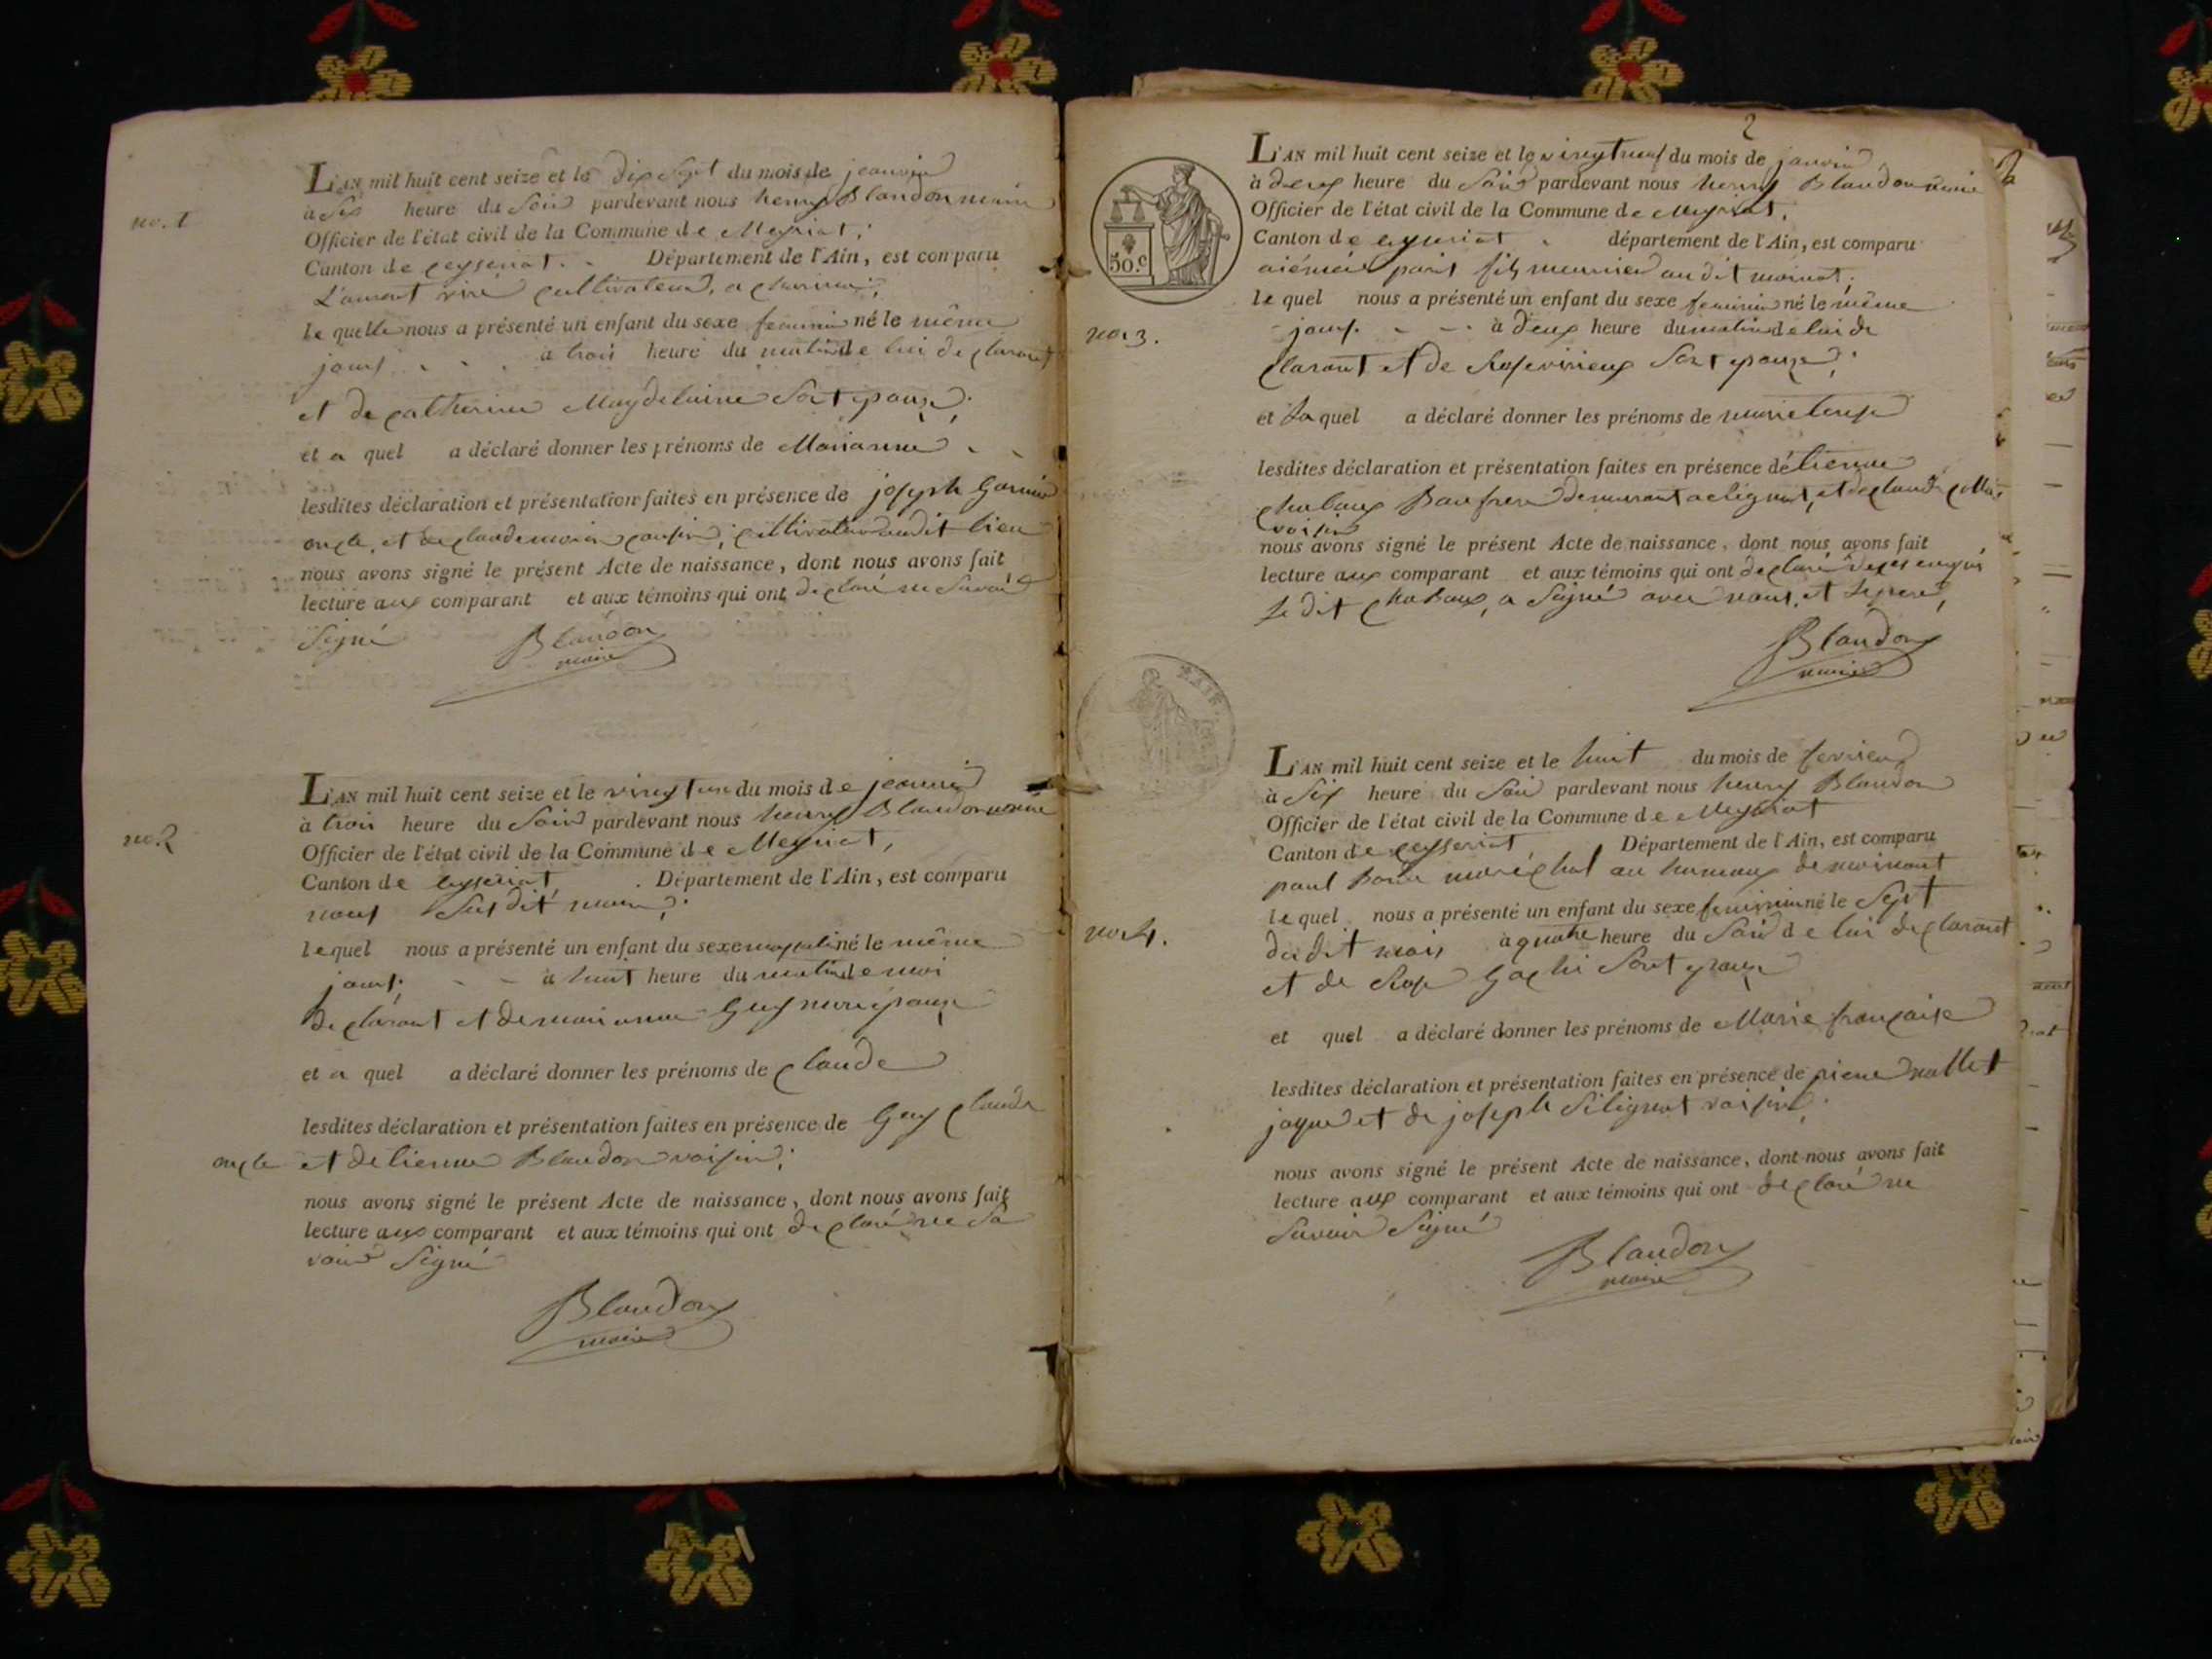 no. 1
L'AN mil huit cent seize et le dix sept du mois de janvier
à six heure du soir pardevant nous henry Blandon maire
Officier de l'état civil de la Commune de Meyriat,
Canton de ceyseriat. Département de l'Ain, est comparu
cultivateur, a
le quelle nous a présenté un enfant du sexe feminin né le même
jours a trois heure du matin de lui declarant
et de catherine Magdelaine sont epouze;
et a quel a déclaré donner les prénoms de Marianne
lesdites déclaration et présentation faites en présence de joseph
oncle, et de claude cousin, cultivateur audit lieu
nous avons signé le présent Acte de naissance, dont nous avons fait
lecture aux comparant et aux témoins qui ont declaré ne savoir
signé
Blandon
maire
no. 2
L'AN mil huit cent seize et le vingt un du mois de janvier
à trois heure du soir pardevant nous henry Blandon maire
Officier de l'état civil de la Commune de Meyriat,
Canton de ceyseriat, Département de l'Ain, est comparu
nous susdit maire;
lequel nous a présenté un enfant du sexe masculin né le même
jours, à huit heure du matin de moi
declarant et de marianne Guy mon epouze
et a quel a déclaré donner les prénoms de claude
lesdites déclaration et présentation faites en présence de Guy claude
oncle et detienne Blandon voisin;
nous avons signé le présent Acte de naissance, dont nous avons fait
lecture aux comparant et aux témoins qui ont declaré ne sa
voir signé
Blandon
maire
2
50.c
no. 3.
L'AN mil huit cent seize et le vingt neuf du mois de janvier
à deux heure du soir pardevant nous henry Blandon maire
Officier de l'état civil de la Commune de Meyriat,
Canton de ceyseriat département de l'Ain, est comparu
fils meunier au dit
le quel nous a présenté un enfant du sexe feminin né le même
jours. à deux heure du matin de lui de
clarant et de sont epouze;
et la quel a déclaré donner les prénoms de marie
lesdites déclaration et présentation faites en présence détienne
chabaux Baufrere demeurant a et de claude
voisin
nous avons signé le présent Acte de naissance, dont nous avons fait
lecture aux comparant et aux témoins qui ont declaré
le dit chabaux, a signé avec nous, et
Blandon
maire
no. 4.
L'AN mil huit cent seize et le huit du mois de fevrier
à six heure du soir pardevant nous henry Blandon
Officier de l'état civil de la Commune de Meyriat
Canton de ceyseriat, Département de l'Ain, est comparu
paul maréchal au hameaux de
lequel nous a présenté un enfant du sexe feminin né le sept
dudit mois à quatre heure du soir de lui declarant
et de Rose sont epouze
et quel a déclaré donner les prénoms de Marie françoise
lesdites déclaration et présentation faites en présence de pierre
et de joseph Silignat voisins;
nous avons signé le présent Acte de naissance, dont nous avons fait
lecture aux comparant et aux témoins qui ont declaré ne
savoir signé
Blandon
maire